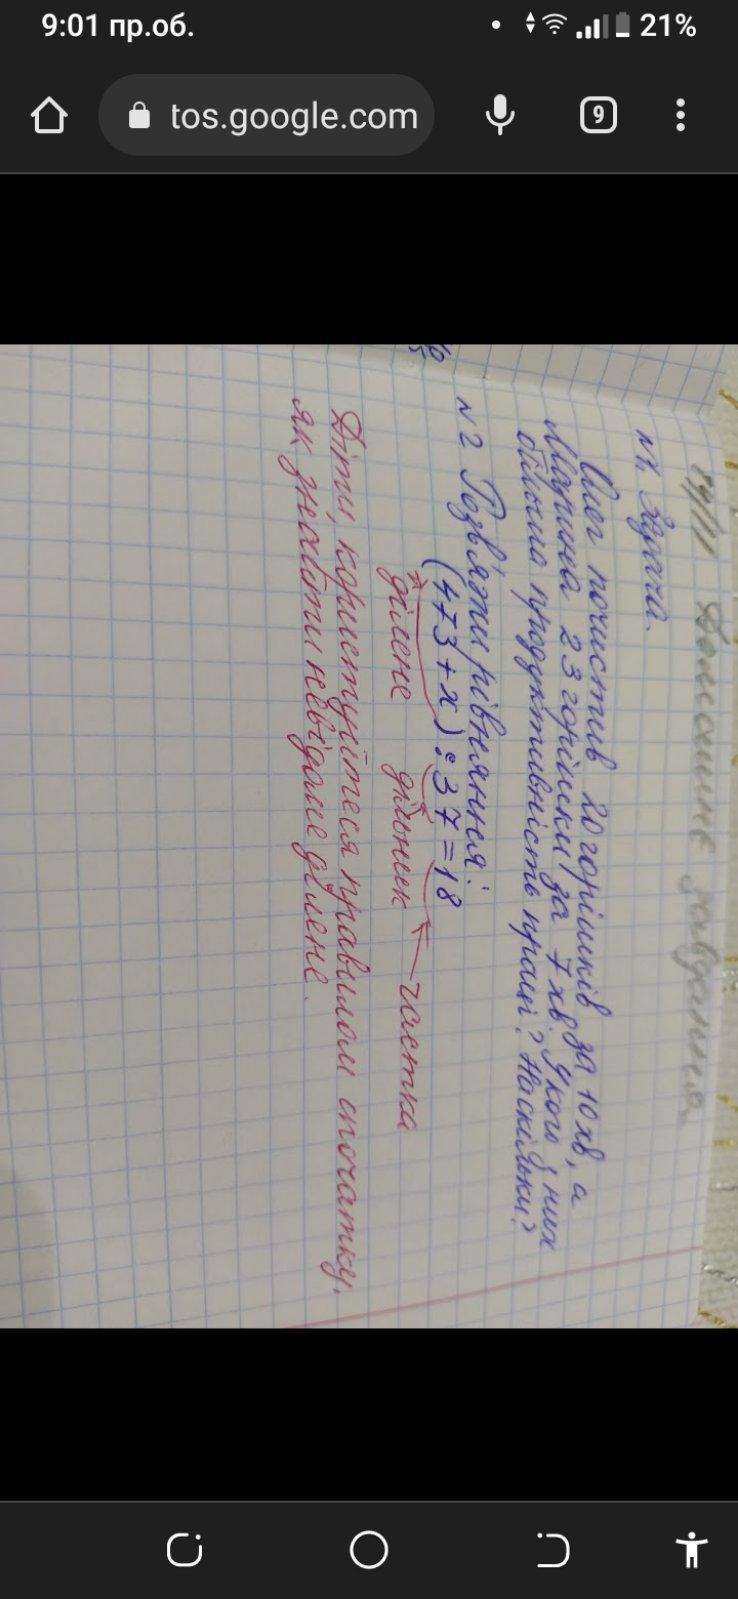 9:01 пр.об.
21%
tos.google.com
9
19/III Домашнє завдання
№1. Задача.
Олег почистив 20 горішків за 10 хв, а
Марина 23 горішки за 7 хв. У кого з них
більша продуктивність праці? На скільки?
№2 Розв'яжи рівняння:
(473+х):37=18
ділене дільник частка
Діти, користуйтеся правилом спочатку,
як знайти невідоме ділене.